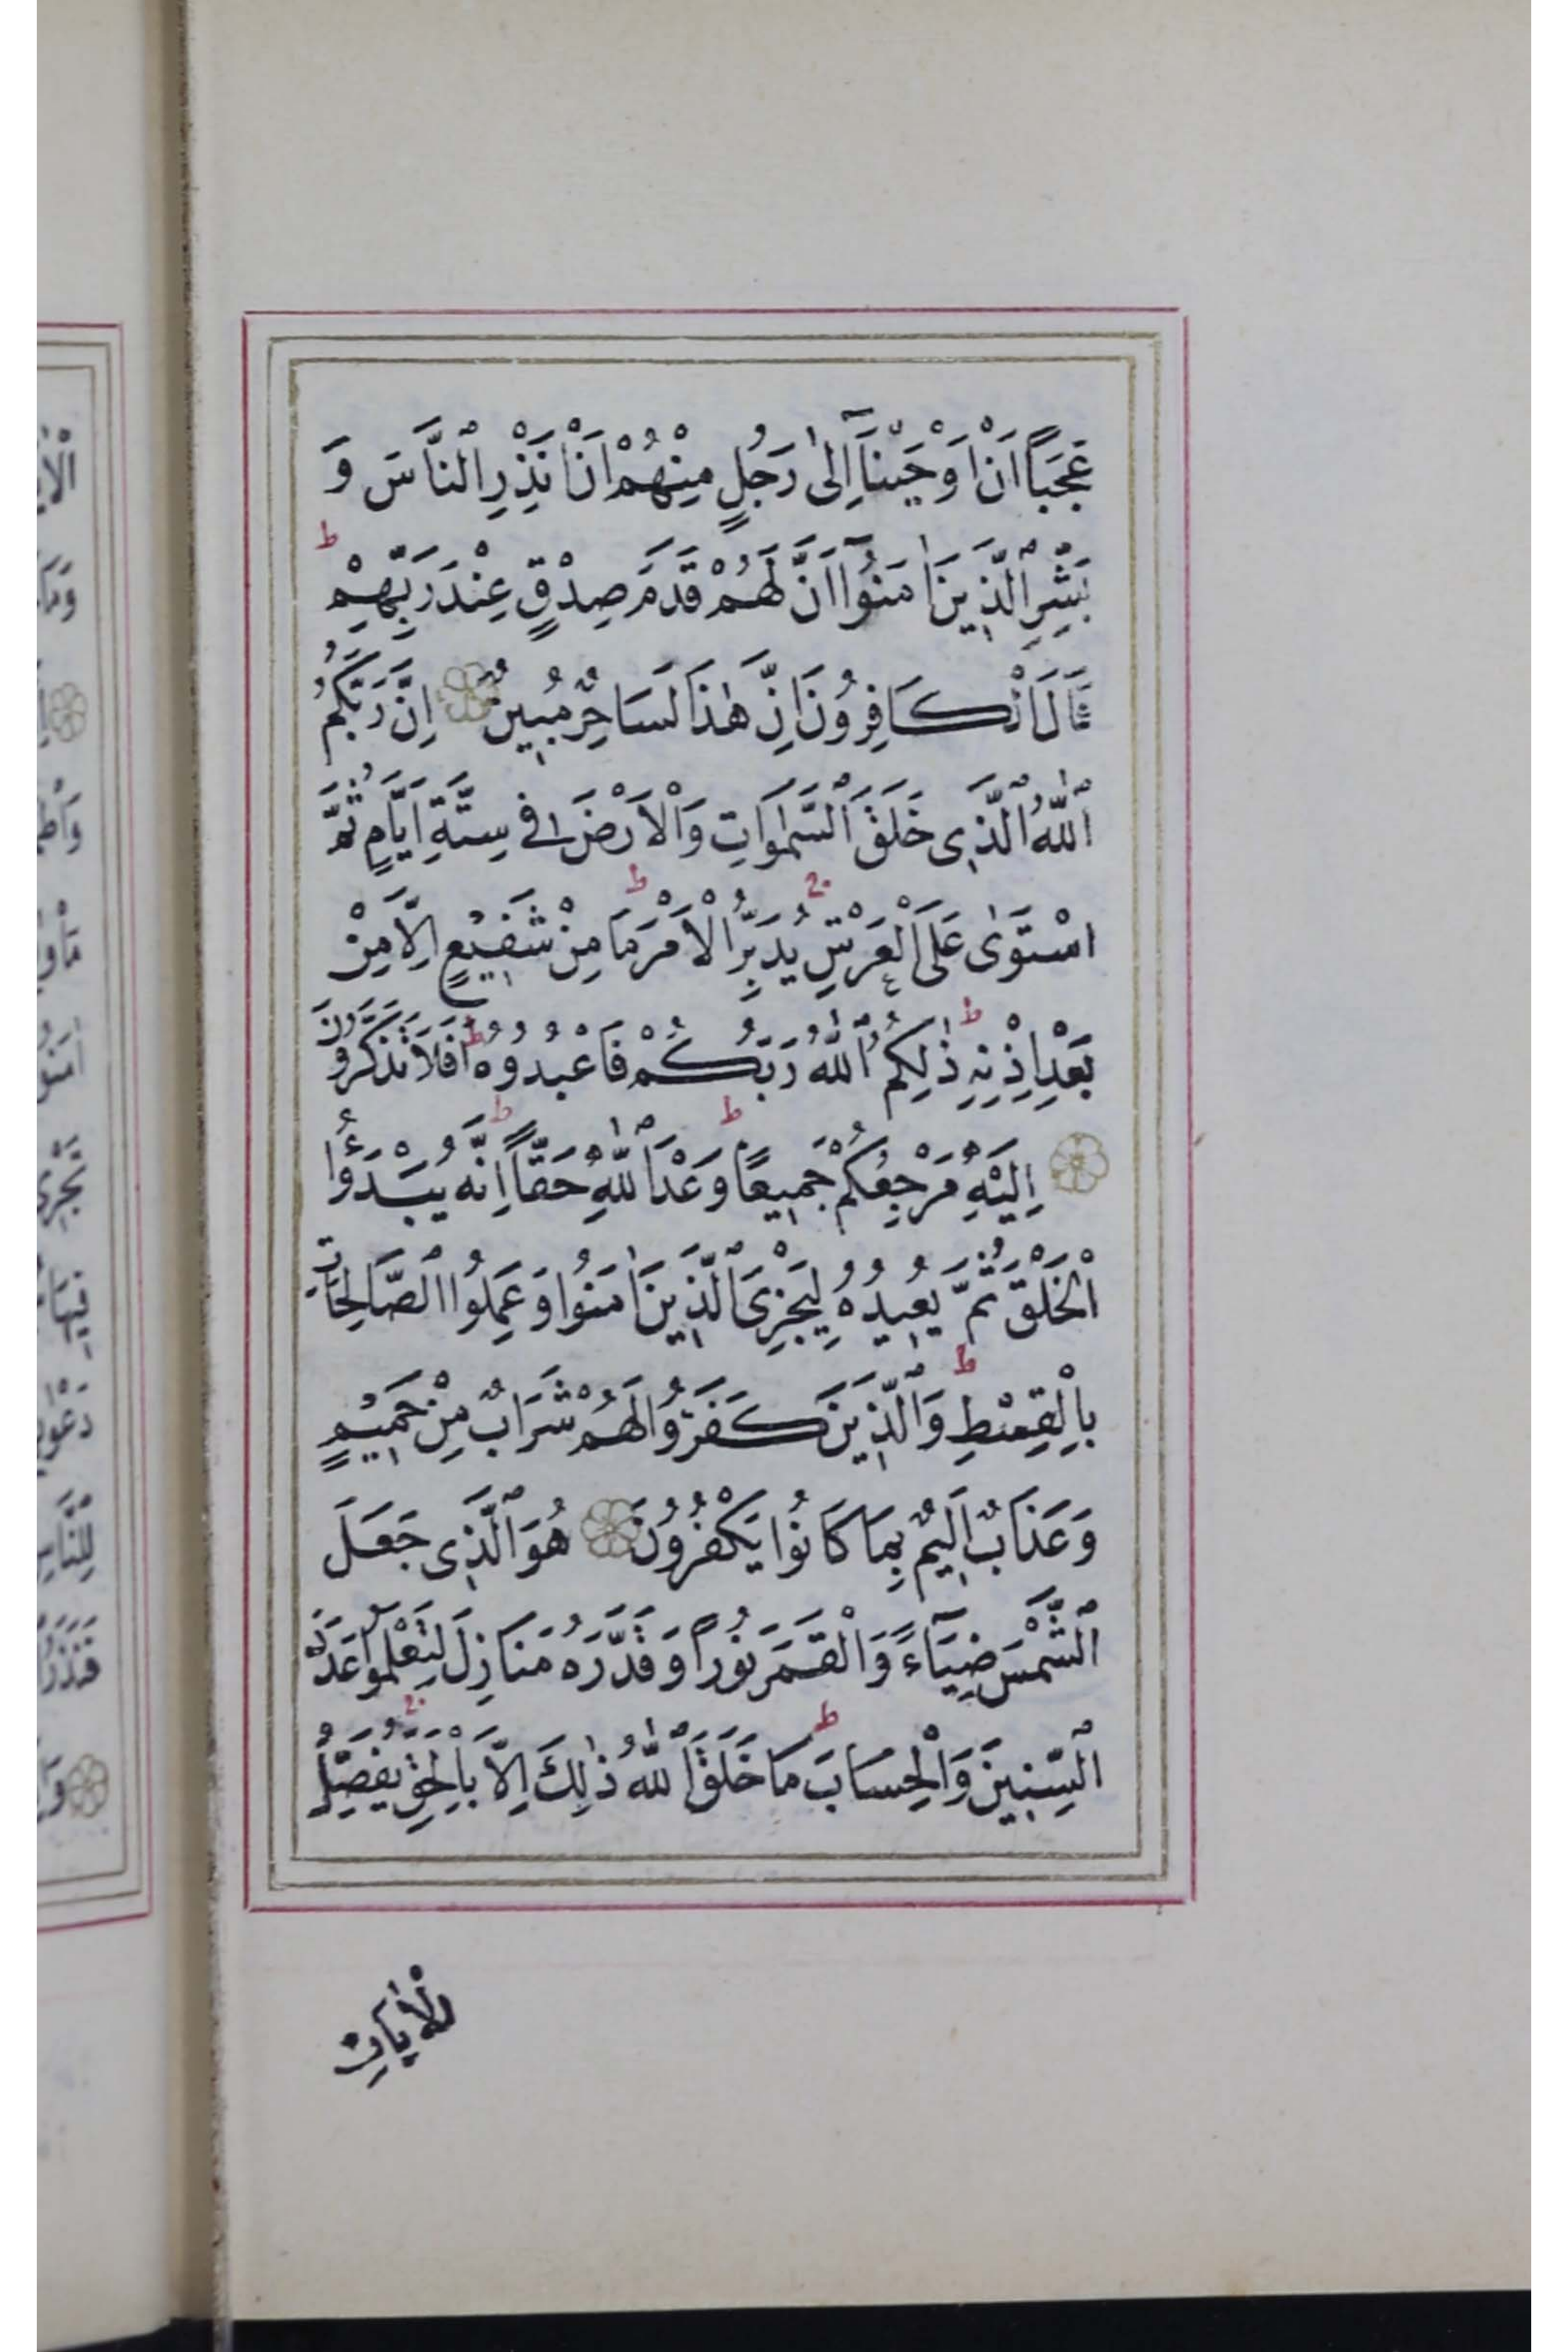 عَجَبًا اَنْ اَوْحَيْنَٓا اِلٰى رَجُلٍ مِنْهُمْ اَنْ اَنْذِرِ النَّاسَ وَ
بَشِّرِ الَّذِينَ اٰمَنُٓوا اَنَّ لَهُمْ قَدَمَ صِدْقٍ عِنْدَ رَبِّهِمْ ط
قَالَ الْكَافِرُونَ اِنَّ هٰذَا لَسَاحِرٌ مُبِينٌ اِنَّ رَبَّكُمُ
اللّٰهُ الَّذِى خَلَقَ السَّمٰوَاتِ وَالْاَرْضَ فِى سِتَّةِ اَيَّامٍ ثُمَّ
اسْتَوٰى عَلَى الْعَرْشِ يُدَبِّرُ الْاَمْرَ ط مَا مِنْ شَفِيعٍ اِلَّا مِنْ
بَعْدِ اِذْنِهِ ط ذٰلِكُمُ اللّٰهُ رَبُّكُمْ فَاعْبُدُوهُ ط اَفَلَا تَذَكَّرُونَ
اِلَيْهِ مَرْجِعُكُمْ جَمِيعًا ط وَعْدَ اللّٰهِ حَقًّا ط اِنَّهُ يَبْدَؤُا
الْخَلْقَ ثُمَّ يُعِيدُهُ لِيَجْزِىَ الَّذِينَ اٰمَنُوا وَعَمِلُوا الصَّالِحَاتِ
بِالْقِسْطِ ط وَالَّذِينَ كَفَرُوا لَهُمْ شَرَابٌ مِنْ حَمِيمٍ
وَعَذَابٌ اَلِيمٌ بِمَا كَانُوا يَكْفُرُونَ هُوَ الَّذِى جَعَلَ
الشَّمْسَ ضِيَٓاءً وَالْقَمَرَ نُورًا وَقَدَّرَهُ مَنَازِلَ لِتَعْلَمُوا عَدَدَ
السِّنِينَ وَالْحِسَابَ ط مَا خَلَقَ اللّٰهُ ذٰلِكَ اِلَّا بِالْحَقِّ يُفَصِّلُ
الْاٰيَاتِ